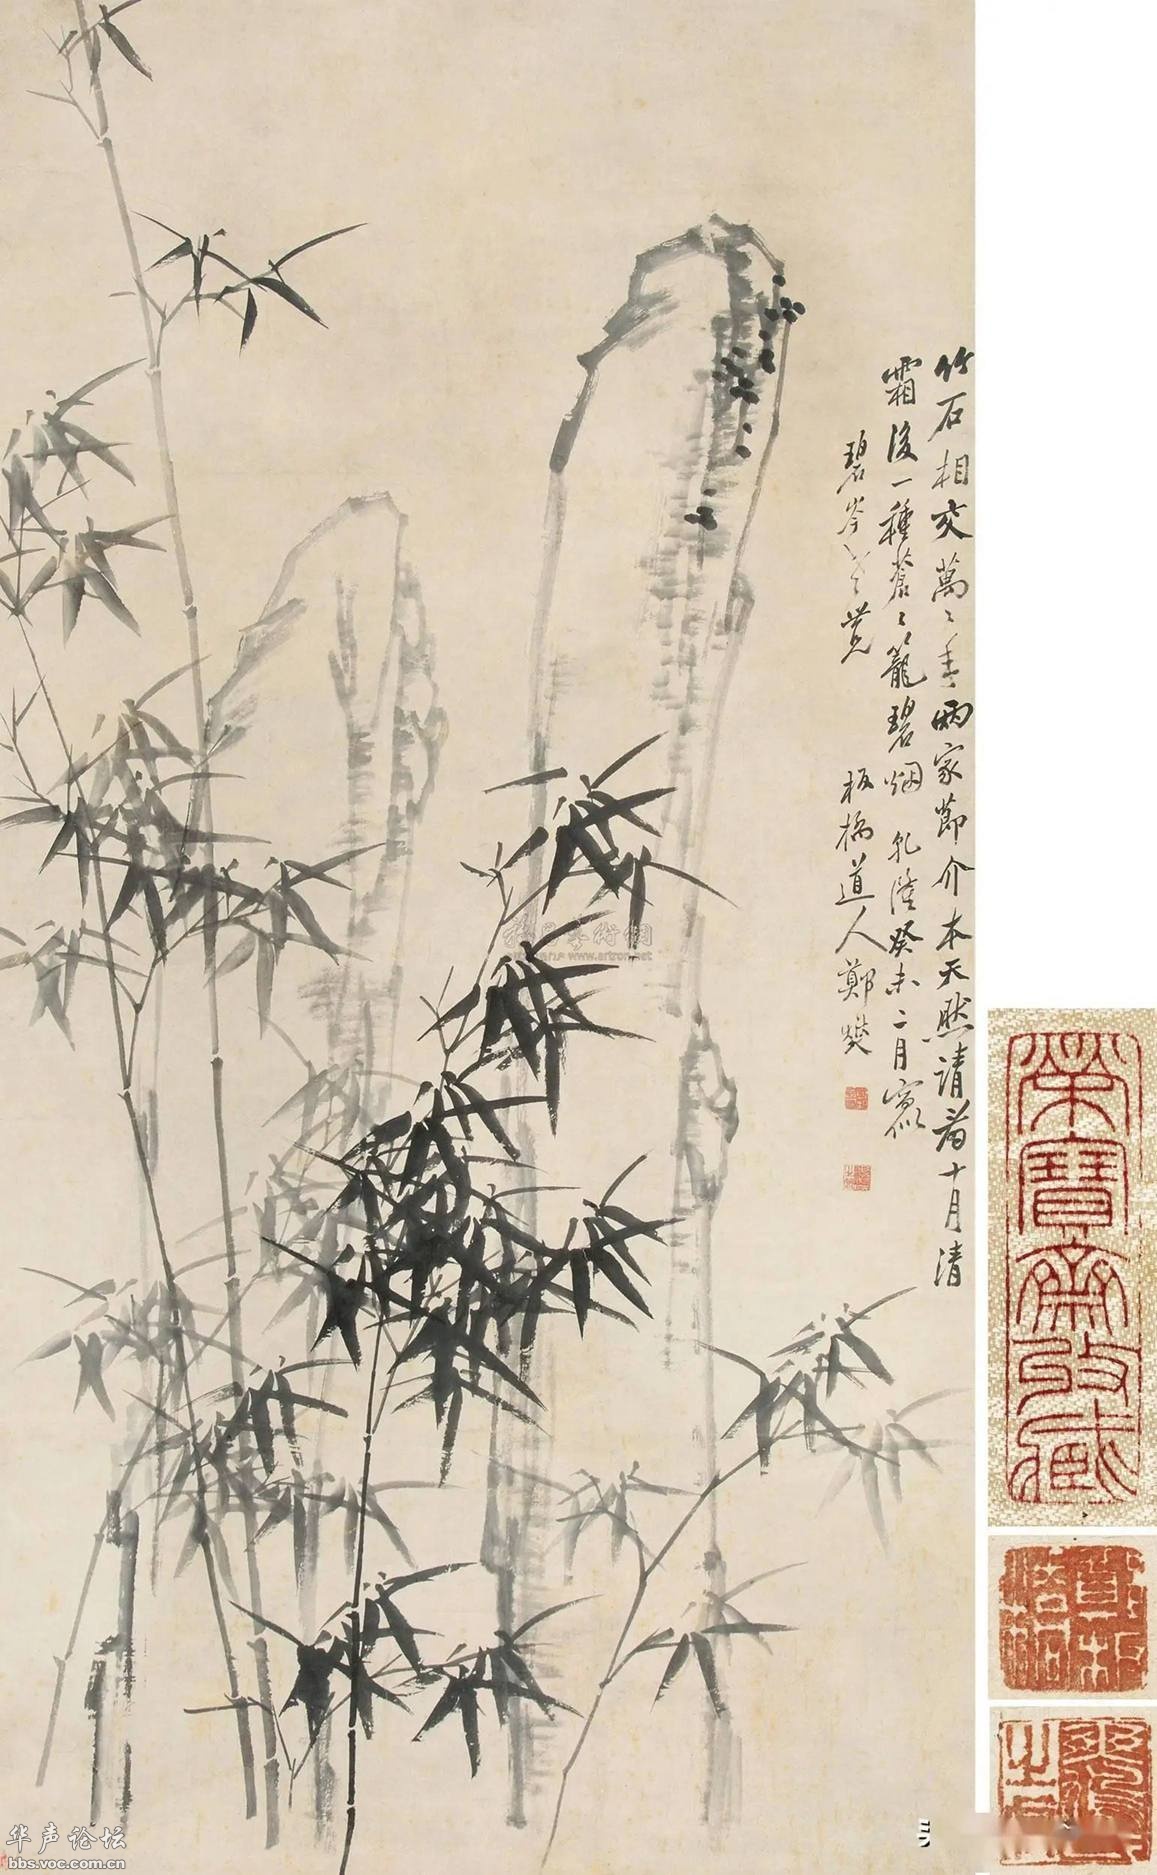 竹石相交萬〻年兩家節介本天然請看十月清
霜後一種蒼〻籠碧烟 乾隆癸未二月寫似
碧岑 覽
板橋道人鄭燮
榮寶齋收藏
www.artron.net
华声论坛
bbs.voc.com.cn